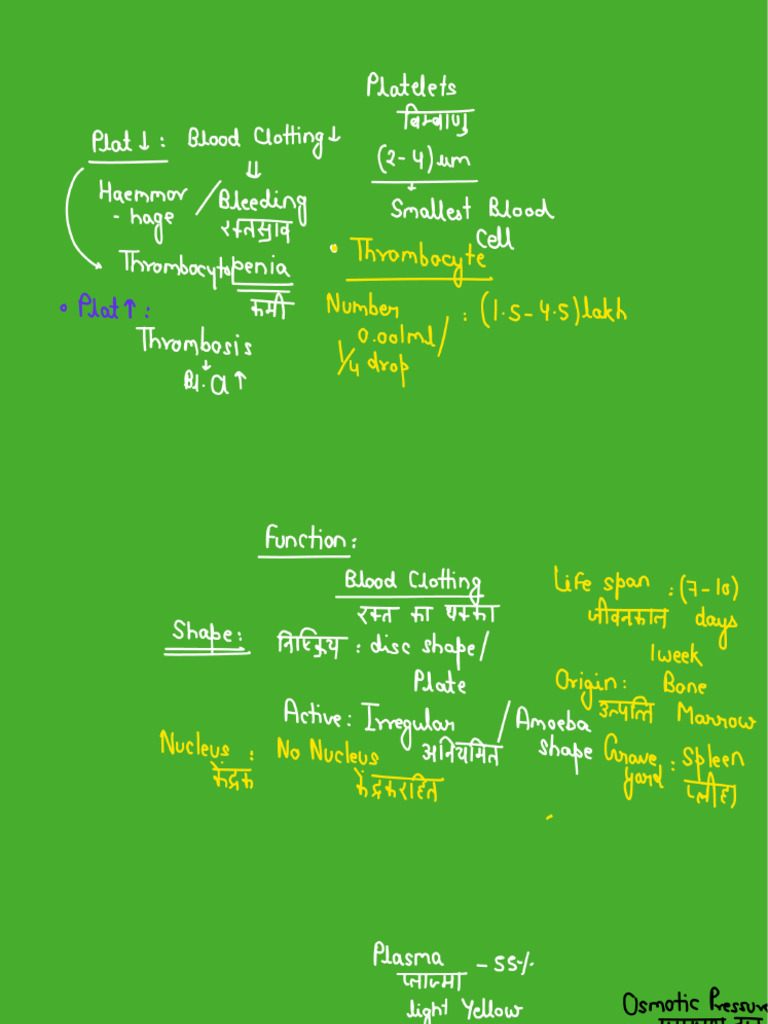 Platelets
बिम्बाणु
(2-4) um
Smallest Blood
Cell
Plat↓: Blood Clotting↓
⇓
Haemmor
-hage / Bleeding
रक्तस्राव
Thrombocytopenia
कमी
• Plat↑:
Thrombosis
↓
Bl. Cl ↑
• Thrombocyte
Number
0.001ml/
1/4 drop : (1.5-4.5) lakh
Function:
Blood Clotting
रक्त का थक्का
Shape: निष्क्रिय : disc shape/
Plate
Active: Irregular / Amoeba
अनियमित shape
Nucleus : No Nucleus
केंद्रक केंद्रकरहित
Life span : (7-10)
जीवनकाल days
1 week
Origin: Bone
उत्पत्ति Marrow
Grave
yard : Spleen
प्लीहा
Plasma - 55%
प्लाज्मा
light Yellow
Osmotic Pressure